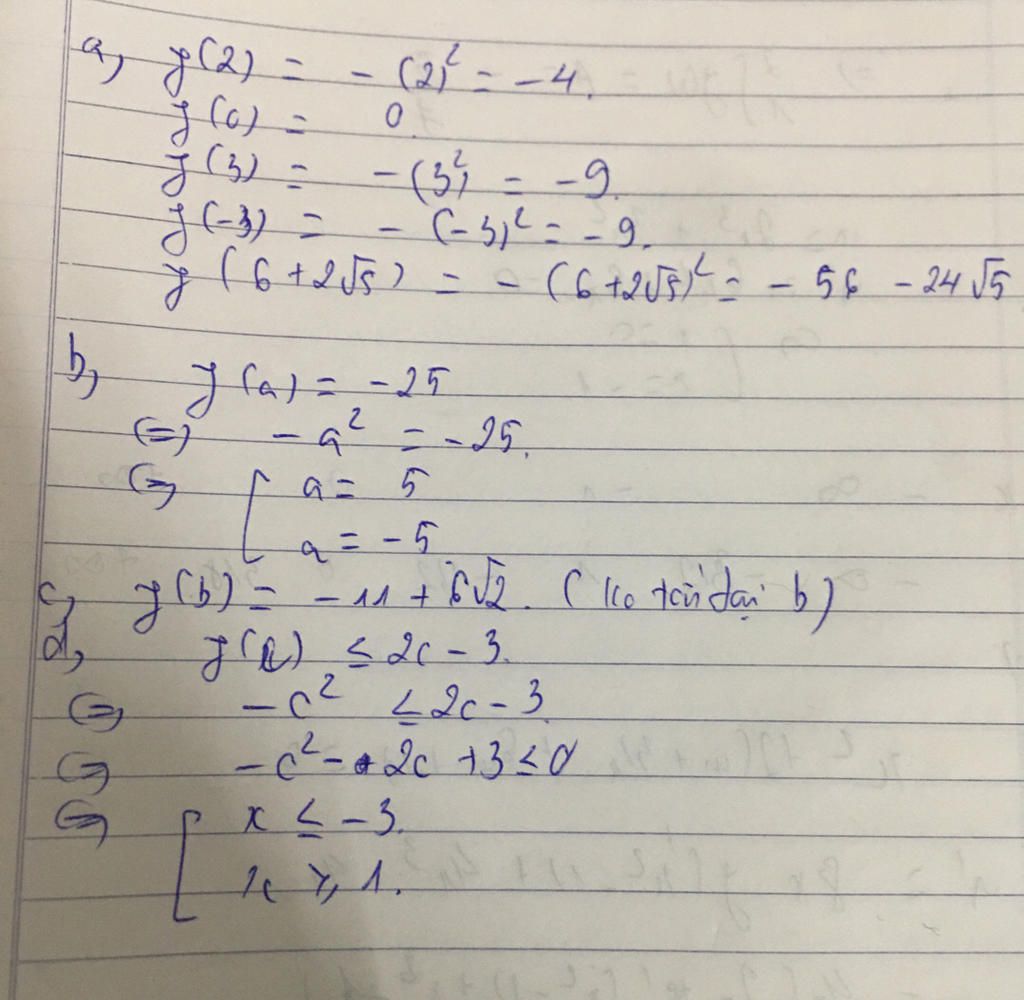 a, y(2) = - (2)² = -4.
y(0) = 0.
y(3) = -(3²) = -9.
y(-3) = - (-3)² = -9.
y(6+2√5) = - (6+2√5)² = - 56 - 24√5
b, y(a) = -25
⇔ - a² = -25.
⇔ [ a = 5
a = -5
c, y(b) = -11 + 6√2. (ko tồn tại b)
d, y(c) ≤ 2c - 3.
⇔ -c² ≤ 2c - 3
⇔ -c² - 2c + 3 ≤ 0
⇔ [ x ≤ -3.
x ≥ 1.